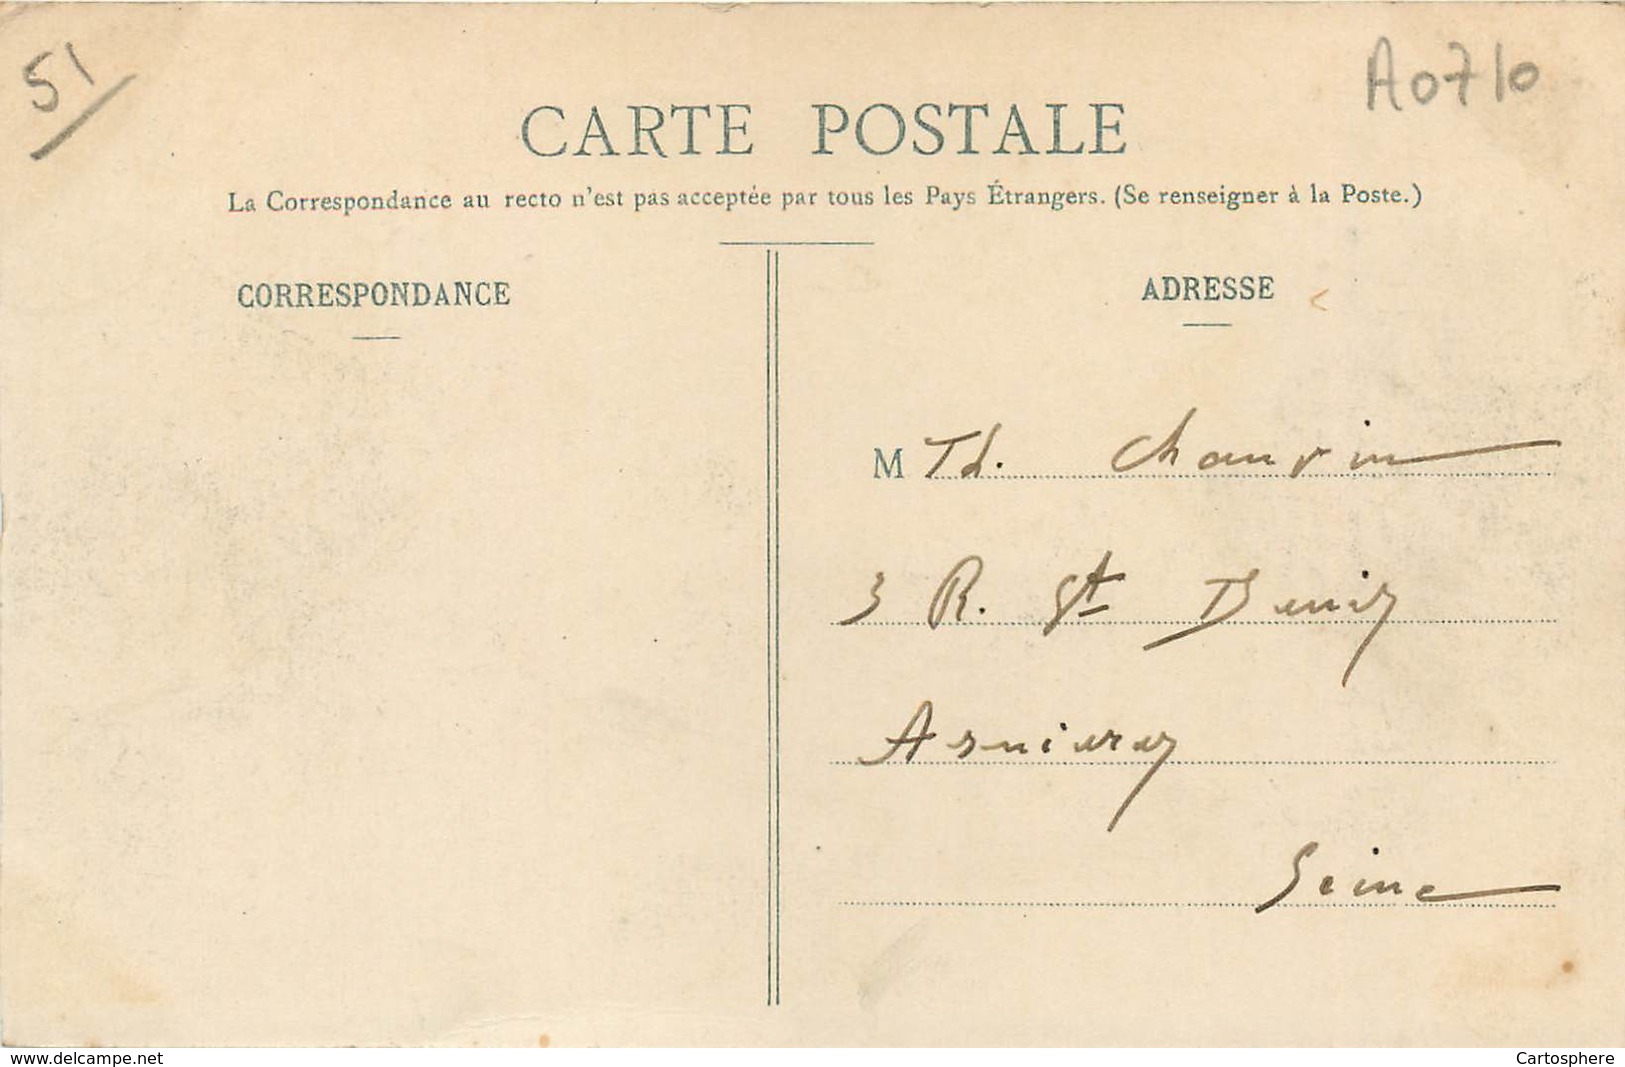 51
A0710
CARTE POSTALE
La Correspondance au recto n'est pas acceptée par tous les Pays Étrangers. (Se renseigner à la Poste.)
CORRESPONDANCE
ADRESSE
M Th. Chauvin
3 R. St Denis
Asnieres
Seine
www.delcampe.net
Cartosphere